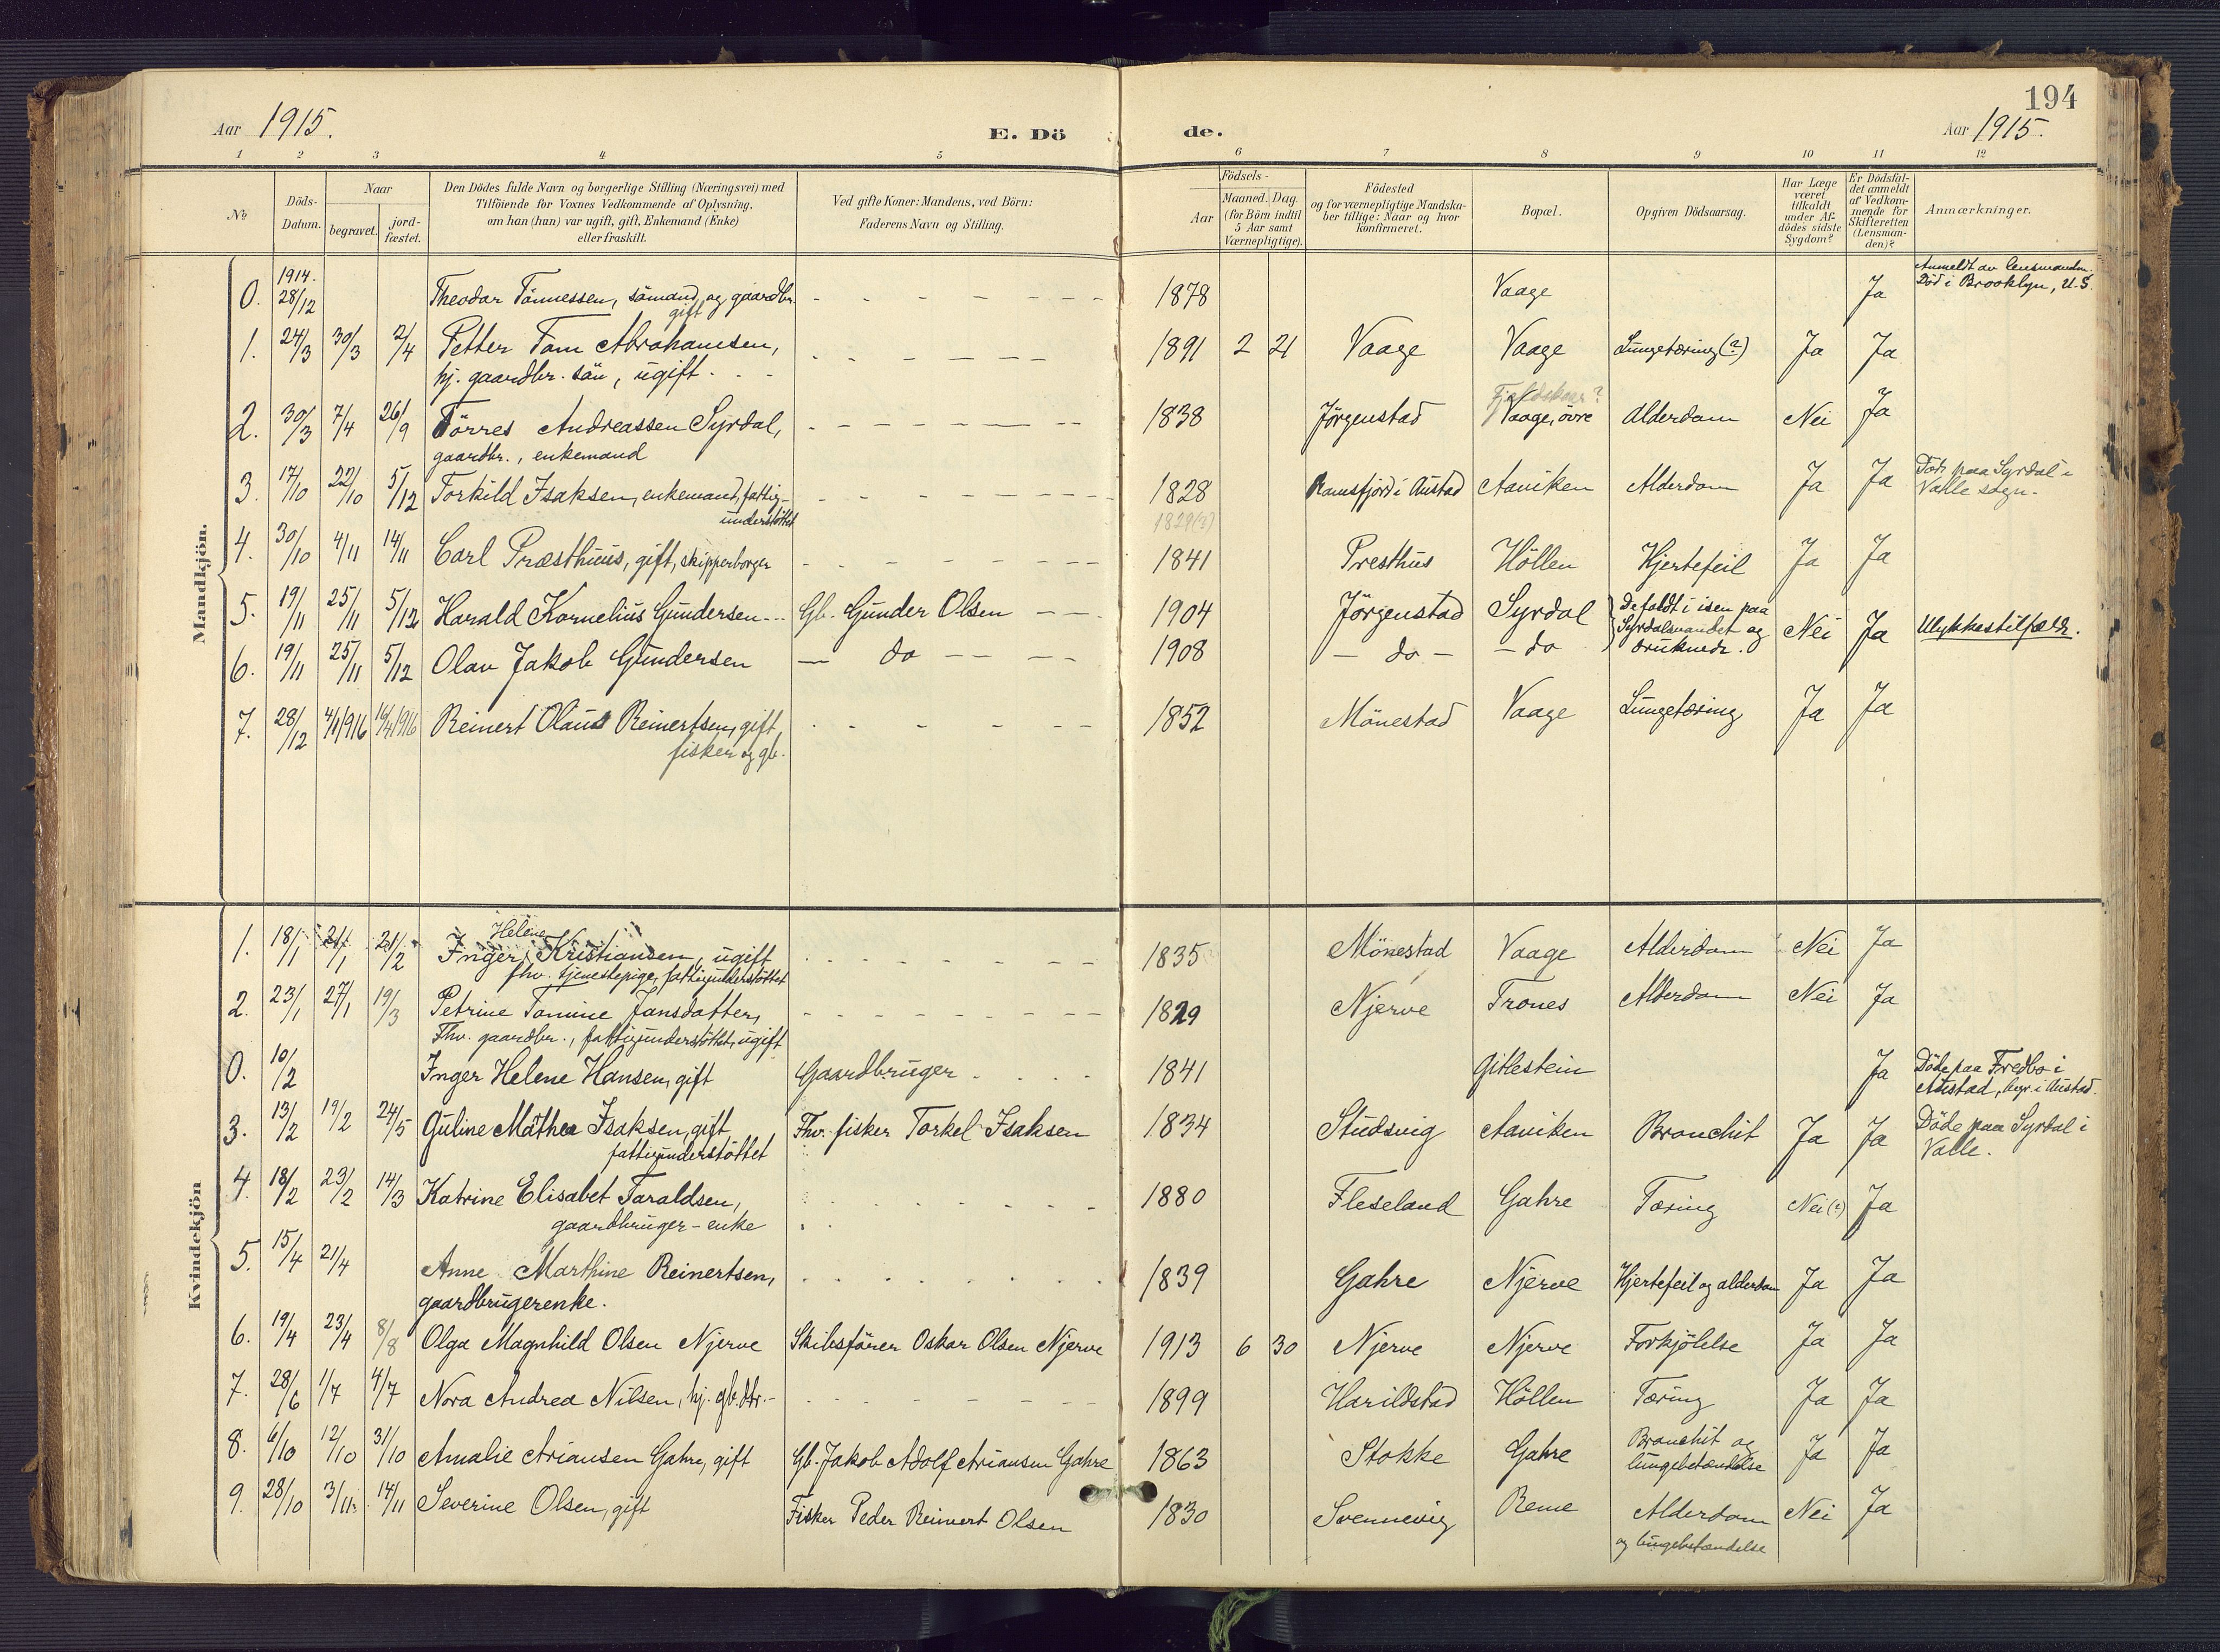 194
Aar 1915. E. Dö de. Aar 1915.
1 2 3 4 5 6 7 8 9 10 11 12
No Döds-Datum. Naar begravet. jord-fæstet. Den Dödes fulde Navn og borgerlige Stilling (Næringsvei) med Tilföiende for Voxnes Vedkommende af Oplysning, om han (hun) var ugift, gift, Enkemand (Enke) eller fraskilt. Ved gifte Koner: Mandens, ved Börn: Faderens Navn og Stilling. Födsels- Aar Maaned. Dag. (for Börn indtil 5 Aar samt Værnepligtige). Födested og for værnepligtige Mandskaber tillige: Naar og hvor konfirmeret. Bopæl. Opgiven Dödsaarsag. Har Læge været tilkaldt under Afdödes sidste Sygdom? Er Dödsfaldet anmeldt af Vedkommende for Skifteretten (Lensmanden)? Anmærkninger.
Mandkjön.
0. 1914. 28/12 Theodor Tönnessen, sömand og gaardbr. gift 1878 Vaage Ja Anmeldt av lensmanden. Död i Brooklyn, U.S.
1. 24/3 30/3 2/4 Petter Tom Abrahamsen, 1891 2 21 Vaage Vaage Lungetæring (?) Ja Ja
hj. gaardbr. sön, ugift
2. 30/3 7/4 26/9 Törres Andreassen Syrdal, 1838 Jörgenstad Vaage, övre Alderdom Nei Ja
gaardbr., enkemand
3. 17/10 22/10 5/12 Torkild Isaksen, enkemand, fattig-understöttet 1828 Ramsfjord i Austad Aaviken Alderdom Ja Ja Död paa Syrdal i Valle sogn.
1829(?)
4. 30/10 4/11 14/11 Carl Præsthuus, gift, skipperborger 1841 Presthus Höllen Hjertefeil Ja Ja
5. 19/11 25/11 5/12 Harald Kornelius Gundersen Gb. Gunder Olsen 1904 Jörgenstad Syrdal De faldt i isen paa Syrdalsvandet og druknede. Nei Ja Ulykkestilfælde.
6. 19/11 25/11 5/12 Olav Jakob Gundersen — do — 1908 — do — — do
7. 28/12 4/1 916 16/4 916 Reinert Olaus Reinertsen, gift, 1852 Mönestad Vaage Lungetæring Ja Ja
fisker og gb.
Kvindekjön
1. 18/1 21/1 21/2 Inger Helene Kristiansen, ugift 1835 Mönestad Vaage Alderdom Nei Ja
fhv. tjenestepige, fattigunderstöttet
2. 23/1 27/1 19/3 Petrine Tomine Jansdatter, 1829 Njerve Trones Alderdom Nei Ja
Fhv. gaardbr., fattigunderstöttet, ugift
0. 10/2 Inger Helene Hansen, gift Gaardbruger 1841 Gitlestein Ja Döde paa Fredbo i Austad, begr. i Austad.
3. 13/2 19/2 24/5 Guline Mathea Isaksen, gift Fhv. fisker Torkel Isaksen 1834 Studsvig Aaviken Bronchit Ja Ja Döde paa Syrdal i Valle.
fattigunderstöttet
4. 18/2 23/2 14/3 Katrine Elisabet Taraldsen, 1880 Fleseland Gahre Tæring Nei (?) Ja
gaardbruger-enke
5. 15/4 21/4 Anne Marthine Reinertsen, 1839 Gahre Njerve Hjertefeil og alderdom Ja Ja
gaardbrugerenke.
6. 19/4 23/4 8/8 Olga Magnhild Olsen Njerve Skibsförer Oskar Olsen Njerve 1913 6 30 Njerve Njerve Forkjölelse Ja Ja
7. 28/6 1/7 4/7 Nora Andrea Nilsen, hj. gb. dtr. 1899 Harildstad Höllen Tæring Ja Ja
8. 6/10 12/10 31/10 Amalie Ariansen Gahre, gift Gb. Jakob Adolf Ariansen Gahre 1863 Stokke Gahre Bronchit og lungebetændelse Ja Ja
9. 28/10 3/11 14/11 Severine Olsen, gift Fisker Peder Reinert Olsen 1830 Svennevig Reme Alderdom Nei Ja
og lungebetændelse